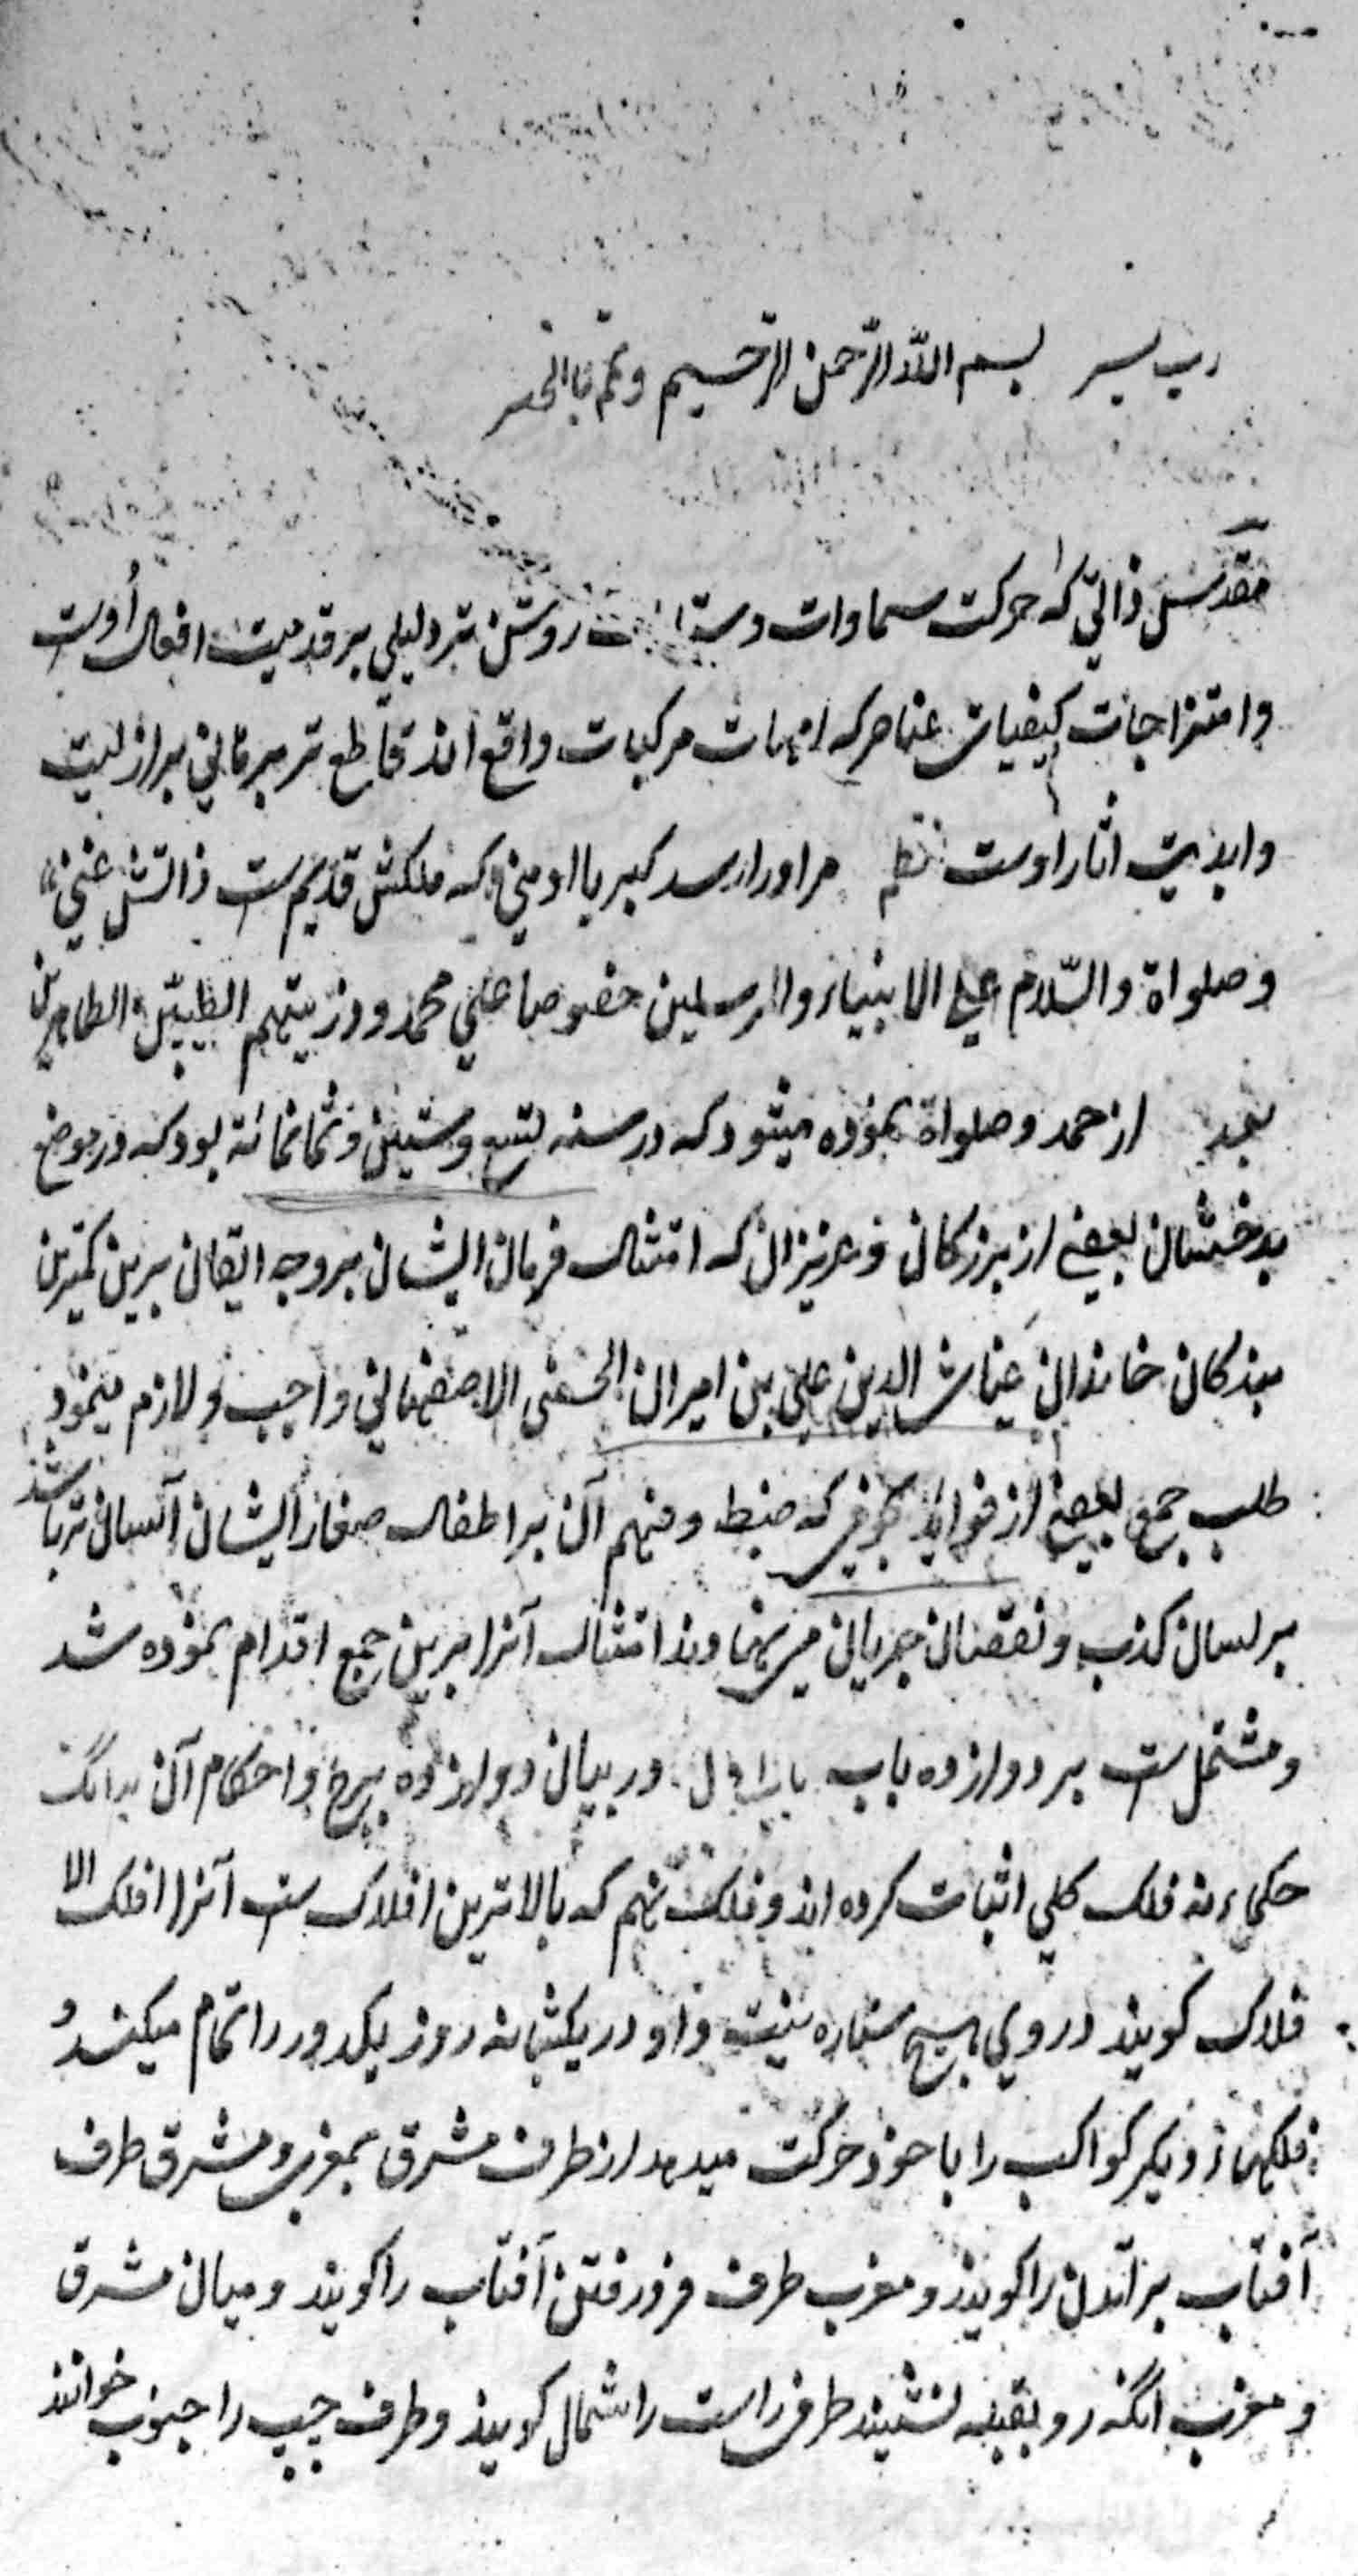 رب یسر بسم الله الرّحمن الرّحیم و تمّم بالخیر
مقدّسّ ذاتی که حرکت سماوات روشن تر دلیلی بر قدمیت افعال اُوست
وامتزاجات کیفیات عناصر که امهات مرکبات واقع اند قاطع تر برهانی بر ازلیت
وابدیت اثار اوست نظم مر اورا رسد کبریا او منی که ملکش قدیم ست ذاتش غنی
وصلواة والسّلام علی الانبیاء والمرسلین خصوصا علی محمد وذریتهم الطیّبین الطاهرین
بعد از حمد وصلواة نموده میشود که در سنه تسع وستین وثمانمائة بود که در موضع
بدخشان بعضی از بزرکان وعزیزان که امتثال فرمان ایشان بر وجه اتقان برین کمترین
بندکان خاندان غیاث الدین علی بن امیران الحسینی الاصفهانی واجب ولازم مینمود
طلب جمع بعضی از فواید نجومی که ضبط وفهم آن بر اطفال صغار ایشان آسان تر باشد
بر لسان کذب ونقصان جریان می امتثال آنرا برین جمع اقدام نموده شد
ومشتمل ست بر دوازده باب باب اول در بیان دوازده برج واحکام آن بدانک
حکماء نه فلک کلی اثبات کرده اند وفلک نهم که بالاترین افلاک ست آنرا افلک الا
فلاک کویند در وی هیچ ستاره نیست واو در یکشبانه روز یکدور را تمام میکند و
فلکهاء دیکر کواکب را با خود حرکت میدهد از طرف مشرق بمغرب ومشرق طرف
آفتاب برآمدن را کویند ومغرب طرف فرو رفتن آفتاب را کویند ومیان مشرق
ومغرب انگه رو بقبله نشیند طرف راست را شمال کویند وطرف چپ را جنوب خوانند